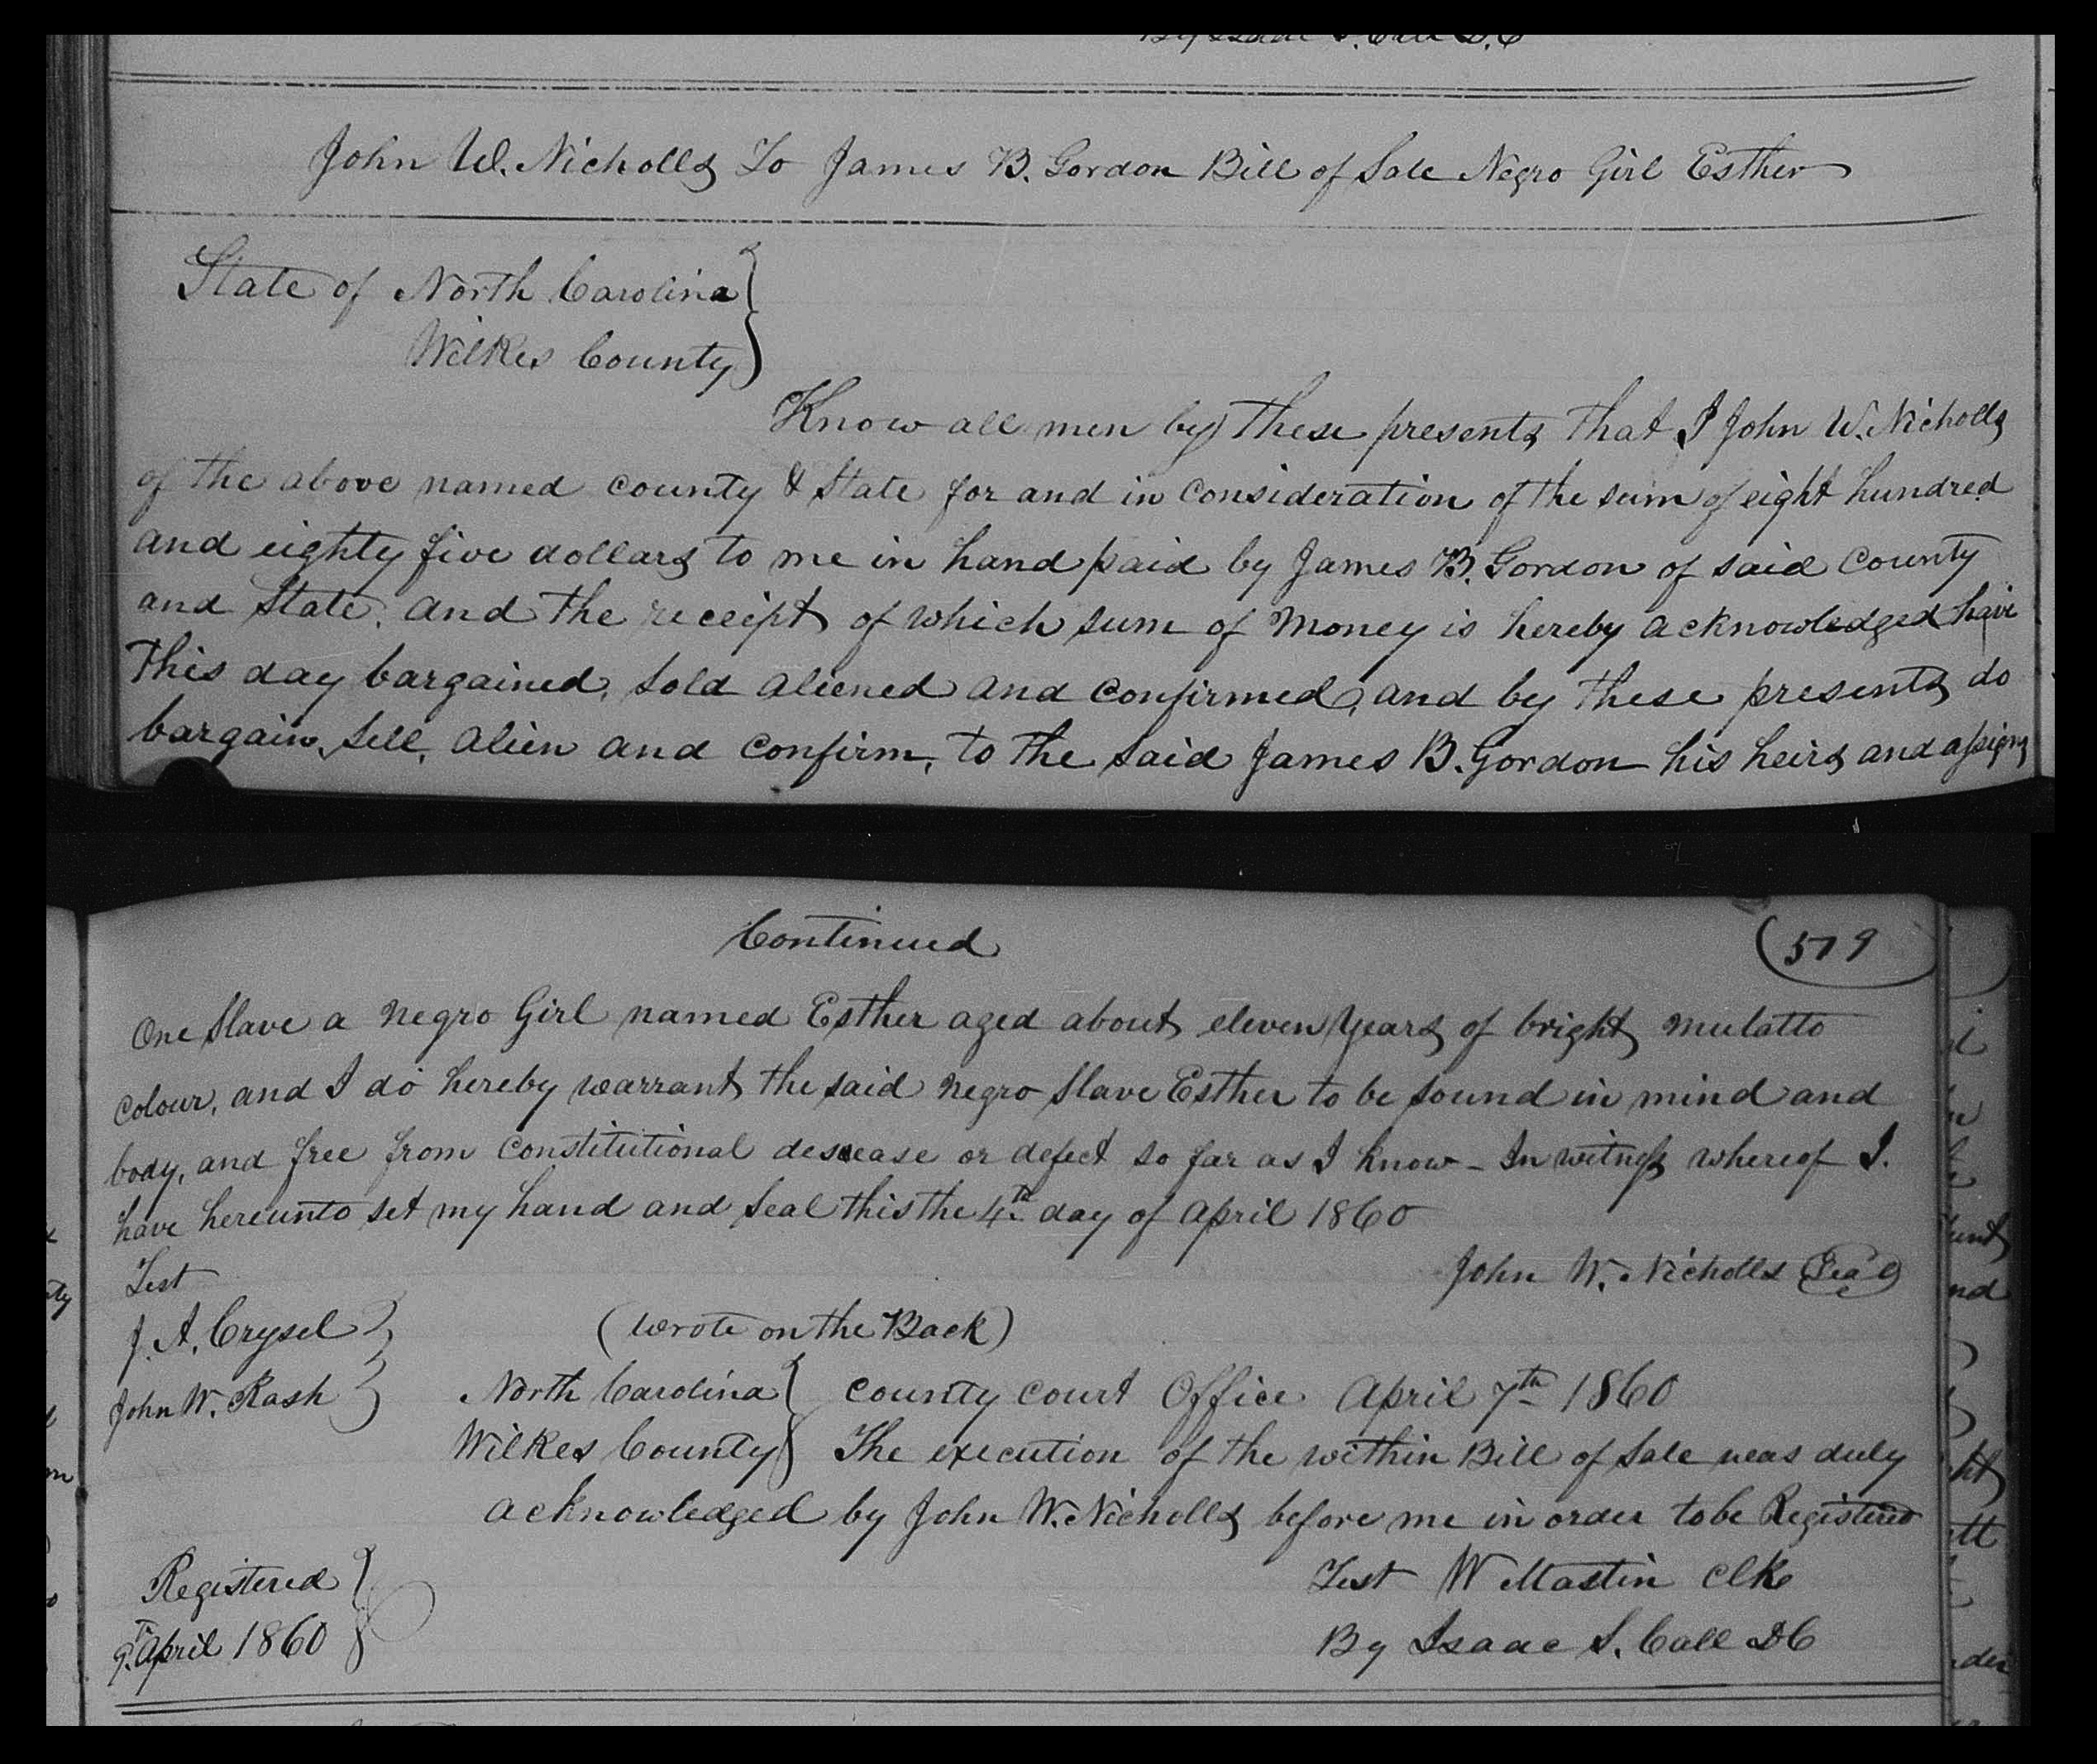 John W. Nicholls To James B. Gordon Bill of Sale Negro Girl Esther
State of North Carolina
Wilkes County
Know all men by these presents that I John W. Nicholls
of the above named county & State for and in consideration of the sum of eight hundred
and eighty five dollars to me in hand paid by James B. Gordon of said County
and State. and the receipt of which sum of money is hereby acknowledged have
this day bargained, sold aliened and confirmed, and by these presents do
bargain, sell, alien and confirm, to the said James B. Gordon his heirs and assigns
Continued
579
One Slave a negro Girl named Esther aged about eleven years of bright mulatto
colour, and I do hereby warrant the said negro Slave Esther to be sound in mind and
body, and free from constitutional desease or defect so far as I know - In witness whereof I.
have hereunto set my hand and seal this the 4th day of April 1860
John W. Nicholls Seal
Test
J. A. Crysel
(wrote on the Back)
John W. Rash
North Carolina County Court Office April 7th 1860
Wilkes County The execution of the within Bill of Sale was duly
acknowledged by John W. Nicholls before me in order to be Registered
Registered
9th April 1860
Test W Mastin Clk
By Isaac S. Call DC